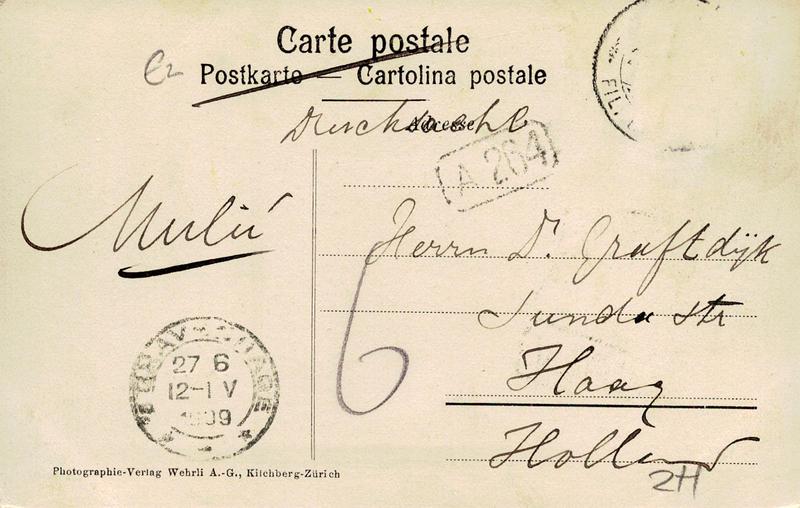 Carte postale
Postkarte — Cartolina postale
Adresse
Drucksache
A 264
FIL.
Herrn Dr. Graftdijk
Sunda str
Haag
Holland
6
'S GRAVENHAGE
27 6
12-1 V
1909
Photographie-Verlag Wehrli A.-G., Kilchberg-Zürich
2H